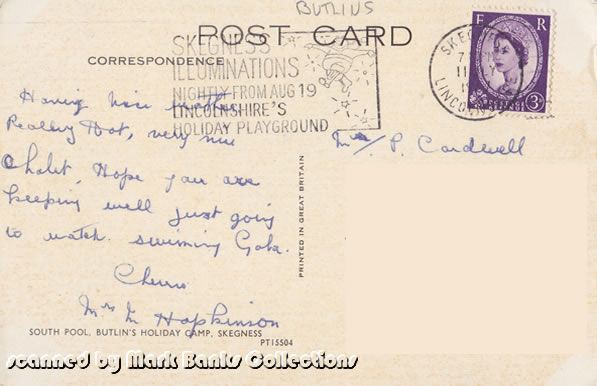 BUTLINS
POST CARD
CORRESPONDENCE
SKEGNESS
ILLUMINATIONS
NIGHTLY FROM AUG 19
LINCOLNSHIRE'S
HOLIDAY PLAYGROUND
SKEGNESS
LINCOLNSHIRE
E R
3D
Having nice weather
Really Hot, very nice
Chalet, Hope you are
keeping well just going
to watch swiming Gala.
Cheerio
Mrs M Hopkinson
Mrs P. Cardwell
PRINTED IN GREAT BRITAIN
SOUTH POOL, BUTLIN'S HOLIDAY CAMP, SKEGNESS
PT15504
scanned by Mark Banks Collections